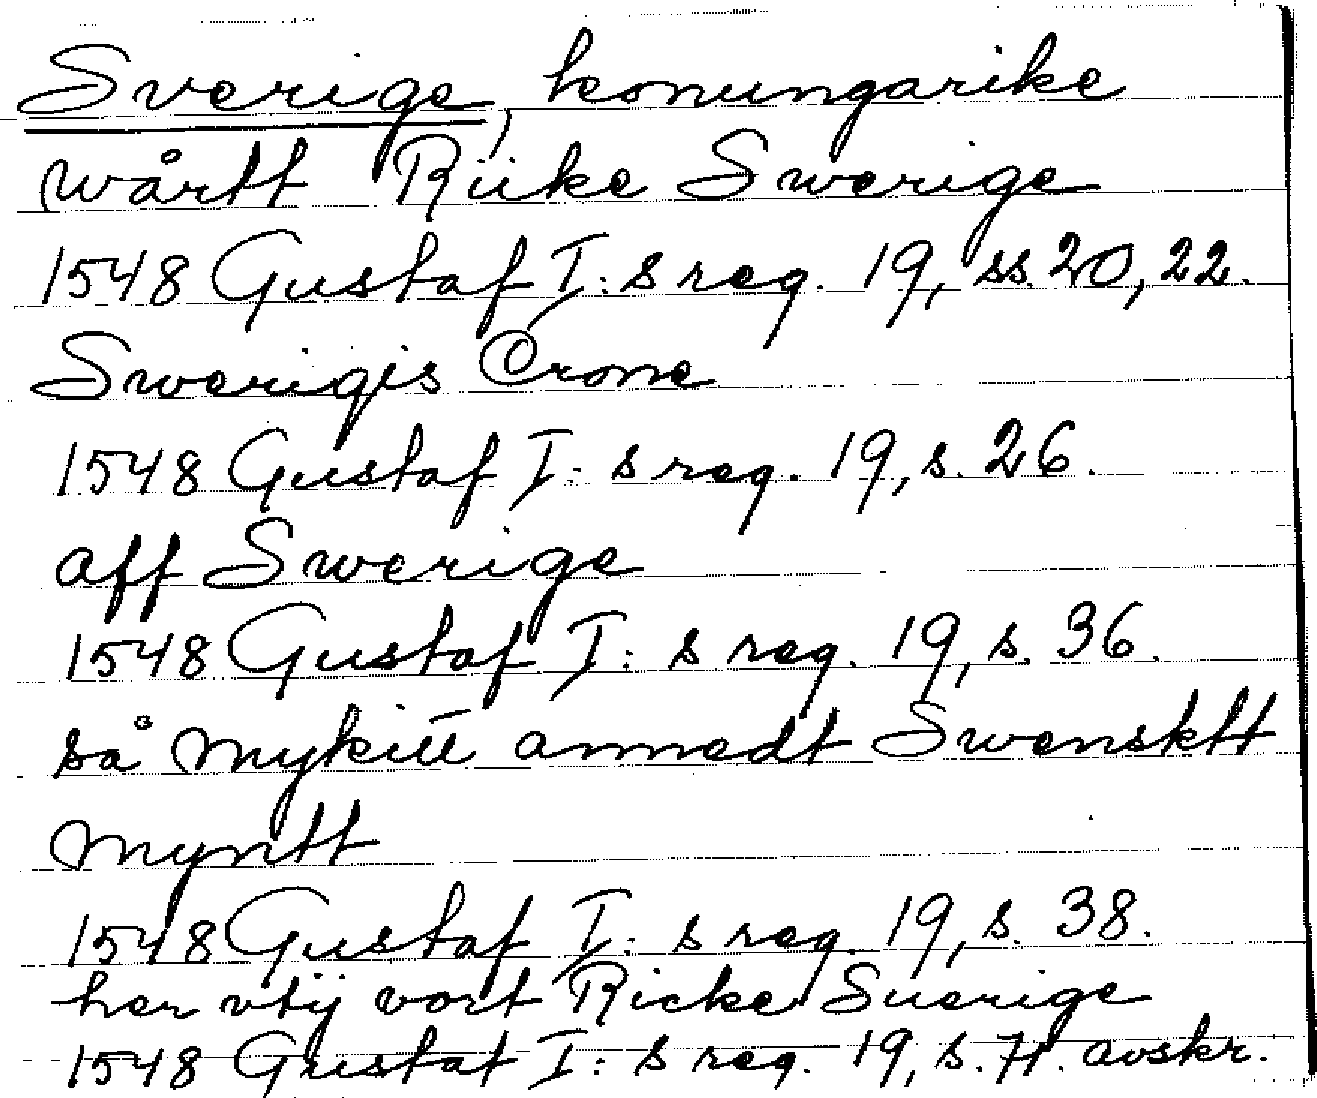 Sverige, konungarike
wårtt Riike Swerige
1548 Gustaf I:s reg. 19, ss. 20, 22.
Swerigis Crone
1548 Gustaf I:s reg. 19, s. 26.
aff Swerige
1548 Gustaf I:s reg. 19, s. 36.
så mykitt annedt Swensktt
myntt
1548 Gustaf I:s reg. 19, s. 38.
her vtij vort Ricke Suerige
1548 Gustaf I:s reg. 19, s. 71. avskr.